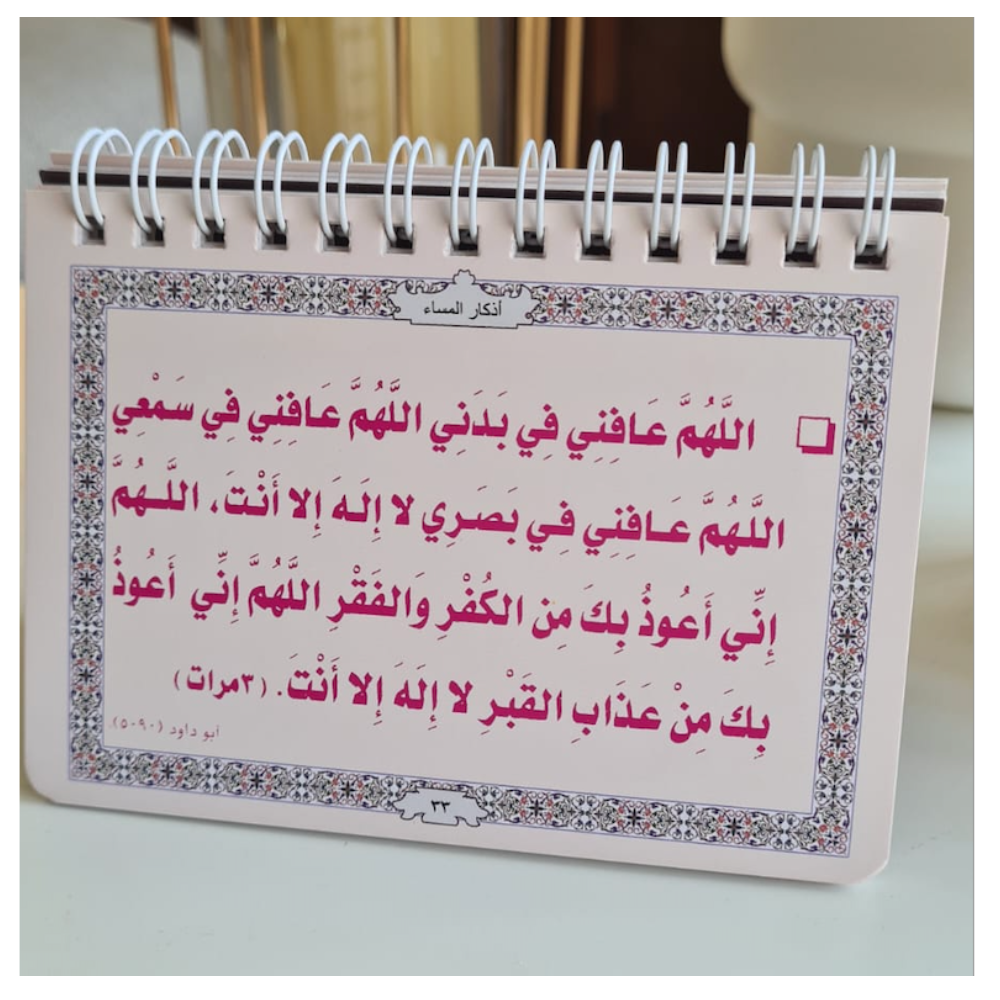 أذكار المساء
اللَّهُمَّ عَافِنِي فِي بَدَنِي اللَّهُمَّ عَافِنِي فِي سَمْعِي
اللَّهُمَّ عَـافِنِي فِـي بَصَـرِي لا إِلَـهَ إِلا أَنْتَ، اللَّـهُمَّ
إِنِّي أَعُوذُ بِكَ مِن الكُفْرِ وَالفَقْرِ اللَّهُمَّ إِنِّي أَعُوذُ
بِكَ مِنْ عَذَابِ القَبْرِ لا إِلَهَ إِلا أَنْتَ. (٣مرات)
أبو داود (٥٠٩٠)
٣٣